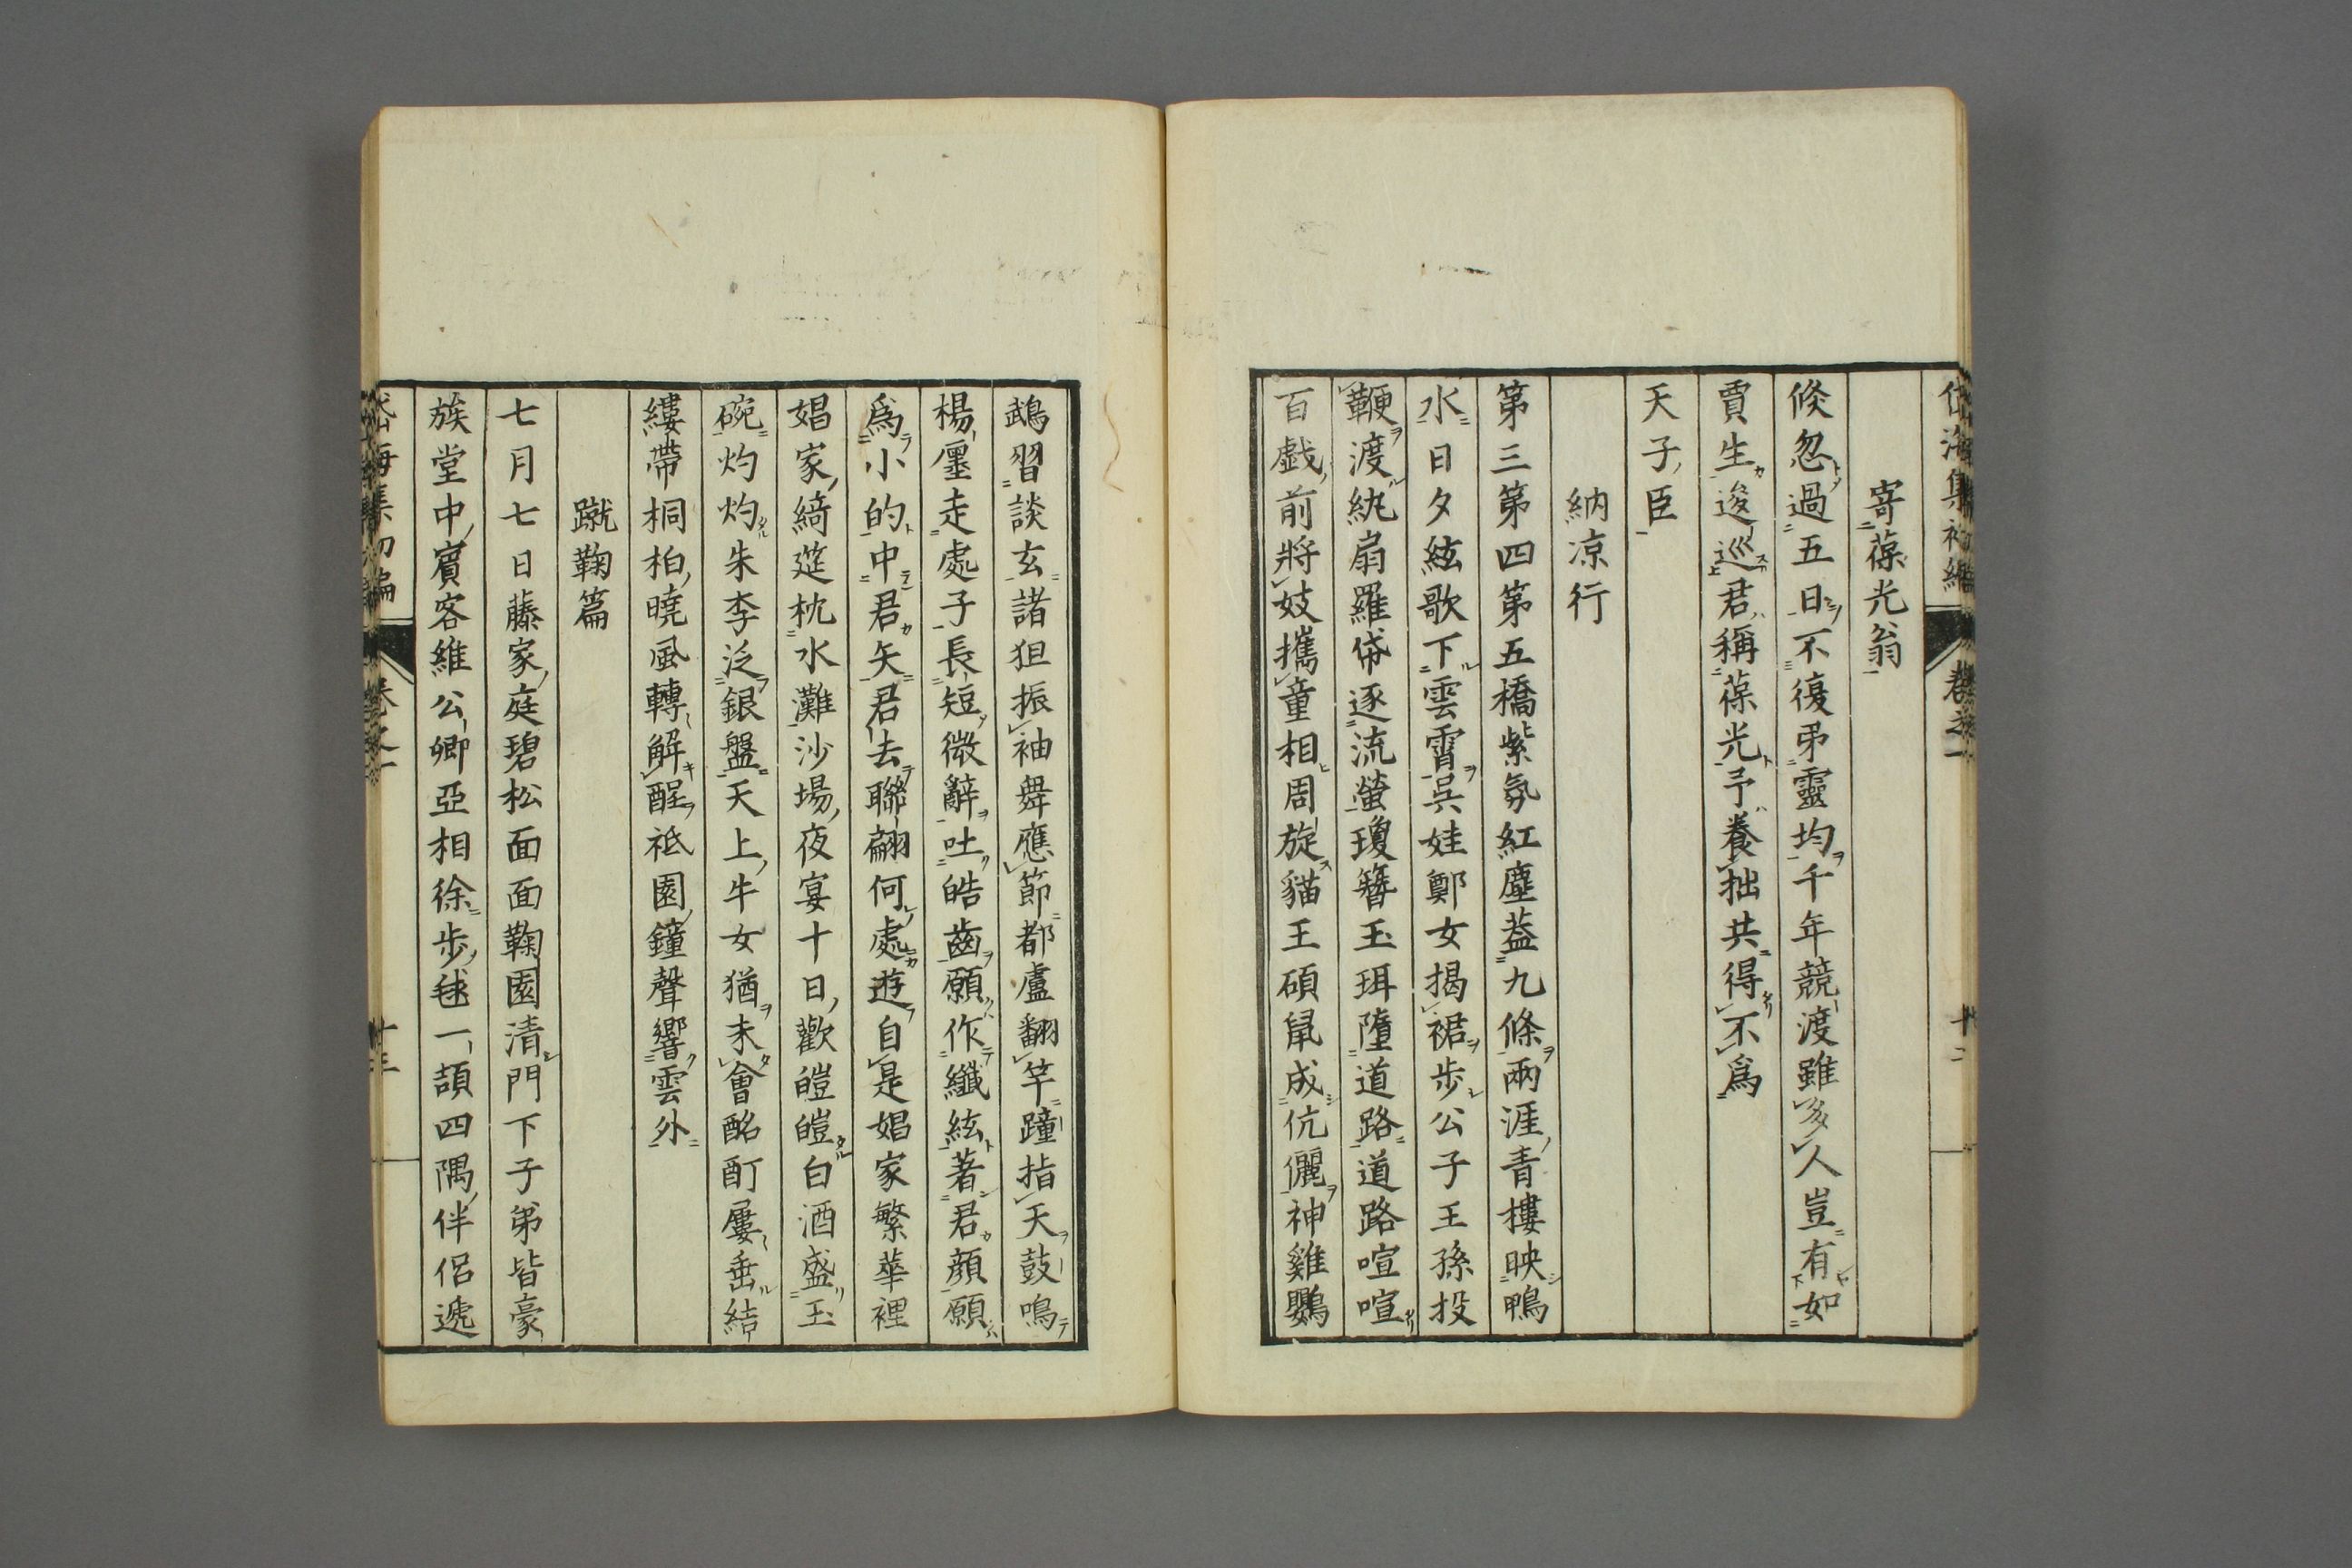 寄葆光翁
倐忽過五日不復弔靈均千年競渡雖多人豈有如
賈生逡巡君稱葆光予養拙共得不爲
天子臣
納凉行
第三第四第五橋紫氛紅塵蓋九條兩涯青樓映鴨
水日夕絃歌下雲霄吳娃鄭女揭裾步公子王孫投
鞭渡紈扇羅帒逐流螢瓊簪玉珥墮道路道路喧喧
百戯前將妓攜童相周旋貓王碩鼠成伉儷神雞鸚
鵡習談玄諸狙振袖舞應節都盧翻竿蹱指天鼓鳴
楊㕓走處子長短微辭吐皓齒願作纖絃著君顔願
爲小的中君矢君去聯翩何處遊自是娼家繁華裡
娼家綺筵枕水灘沙場夜宴十日歡皚皚白酒盛玉
碗灼灼朱李泛銀盤天上牛女猶未會酩酊屢垂結
縷帶桐柏曉風轉解酲祗園鐘聲響雲外
蹴鞠篇
七月七日藤家庭碧松面面鞠園清門下子弟皆豪
族堂中賓客維公卿亞相徐步毬一頡四隅伴侶遞